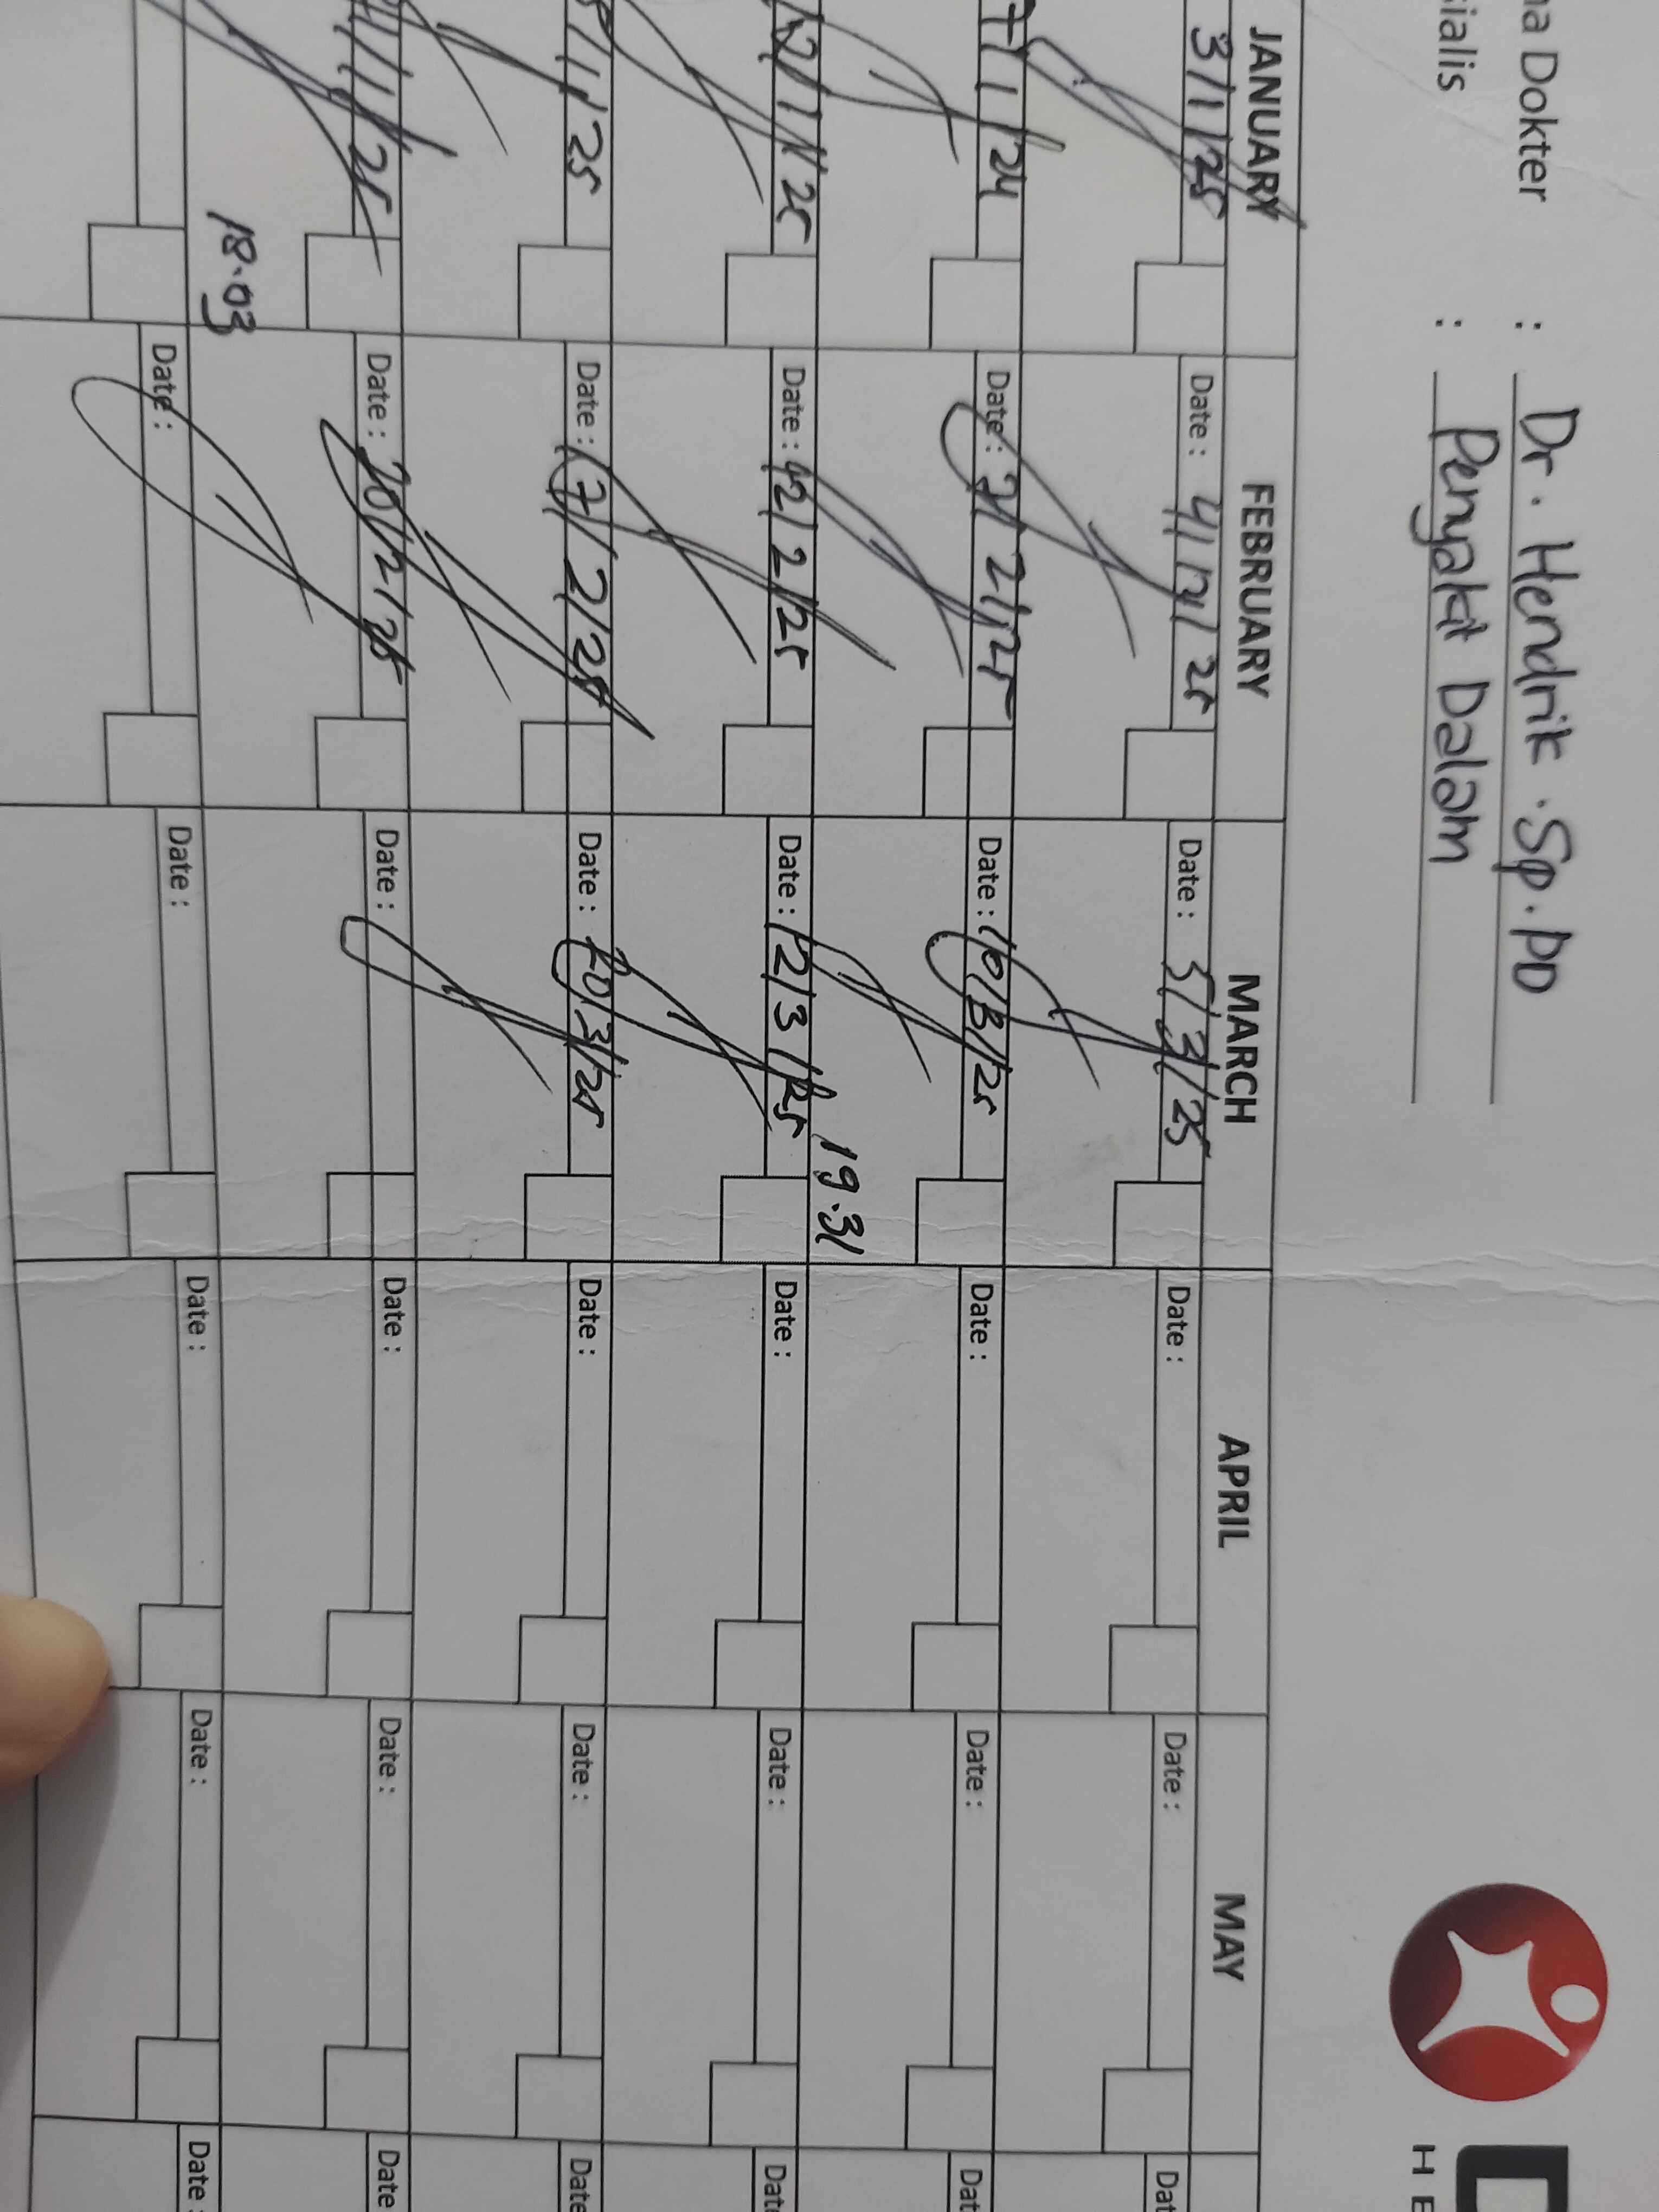 na Dokter : Dr. Hendrik . Sp. PD
ialis : Penyakit Dalam
HE
JANUARY FEBRUARY MARCH APRIL MAY
3/1/25 Date : 4/2/25 Date : 5/3/25 Date : Date : Dat
7/1/24 Date : 7/2/25 Date : 10/3/25 Date : Date : Dat
19.31
/1/25 Date : 12/2/25 Date : 12/3/25 Date : Date : Dat
/1/25 Date : 17/2/25 Date : 20/3/25 Date : Date : Date
/1/25 Date : 20/2/25 Date : Date : Date : Date
18.03
Date : Date : Date : Date : Date :